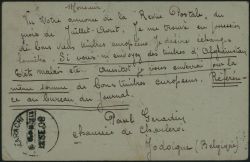 Monsieur,
Vu votre annonce de la Revue Postale, du
mois de Juillet-Août, je me trouve en possession
de bons vieux timbres européens. Je désire échanger
Si vous m'envoyez des timbres d'Afghanistan
Etats malais etc. Aussitôt je vous enverrai sur la
même somme de bons timbres européens. Référen-
ce au bureau du Journal.
Paul
chaussée de Charleroi
Jodoigne (Belgique)